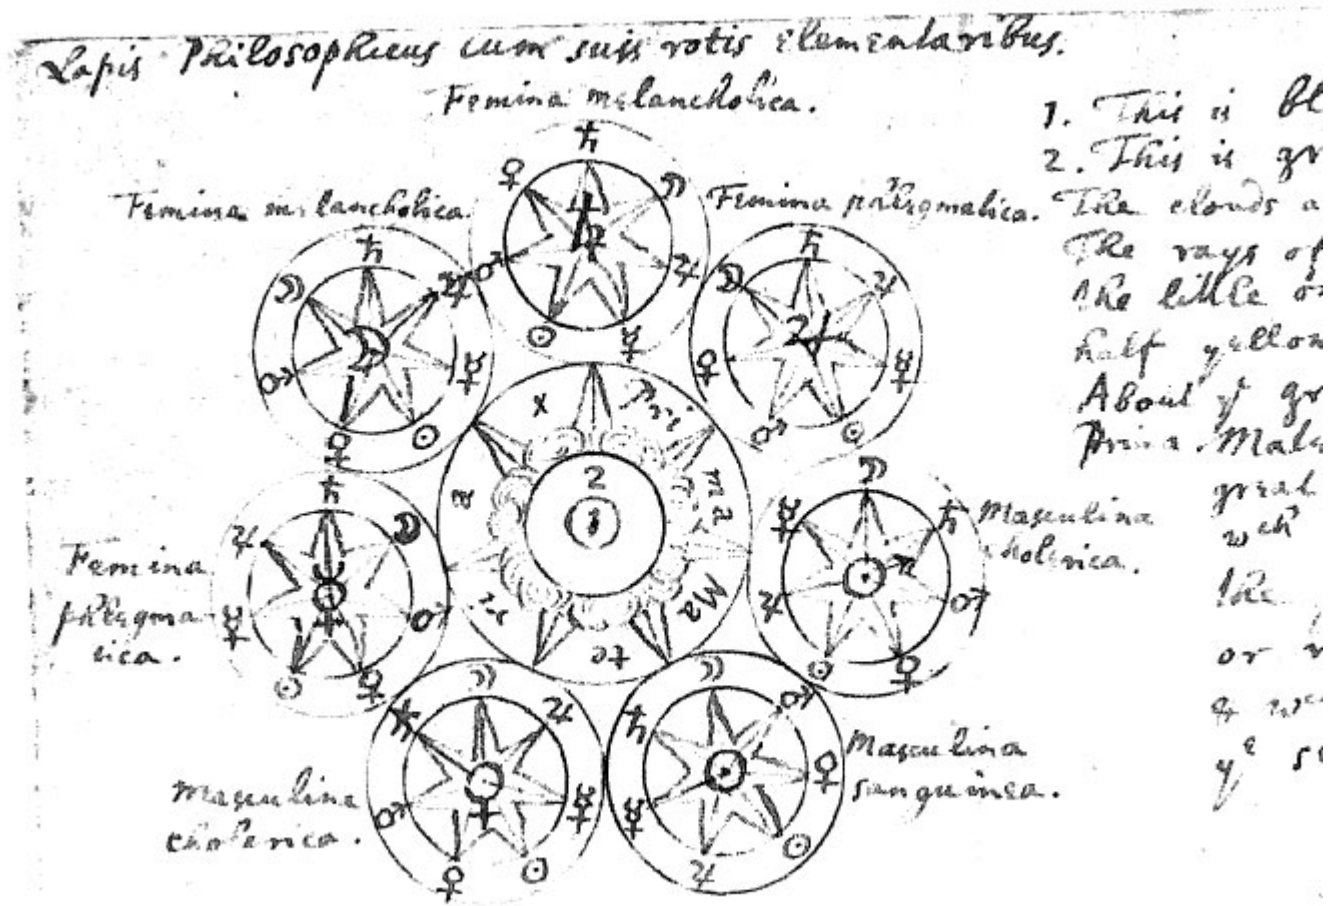 Lapis Philosophicus cum suis rotis elementaribus.
Femina melancholica.
Femina melancholica.
Femina phlegmatica.
Femina
phlegma
tica.
Masculina
cholerica.
Masculina
cholerica.
Masculina
sanguinea.
X
Pri
ma
Ma
te
ri
a
2
1
1. This is bl
2. This is gr
The clouds a
The rays of
the little or
half yellow
About yͤ gr
Prima Mate
great
wch
the
or r
& 
yᵉ